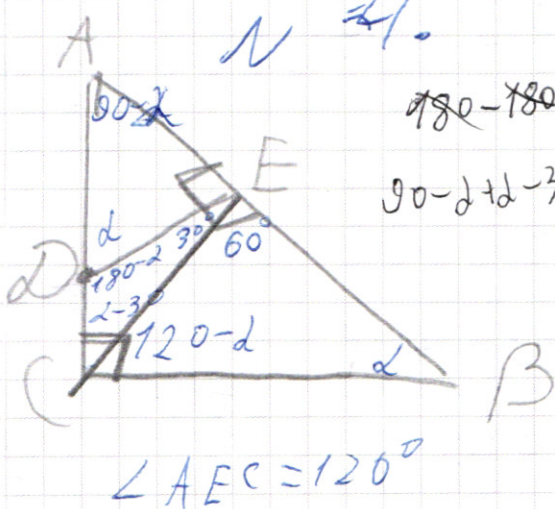 N 4.
A
90-α
180-180
90-α+α-3
E
α
30°
60°
D
180-α
α-30
120-α
α
C
B
∠AEC=120°